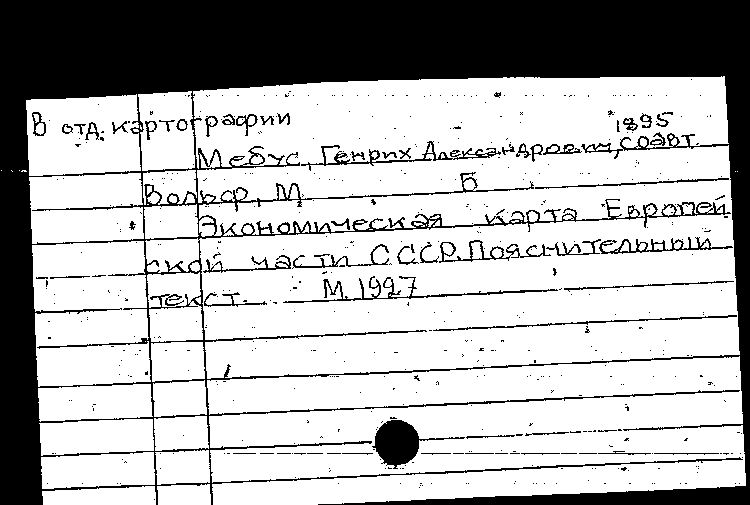 В отд. картографии
1895
Мебус, Генрих Александрович, соавт.
Вольф, М. Б
Экономическая карта Европей
ской части СССР. Пояснительный
текст. М. 1927